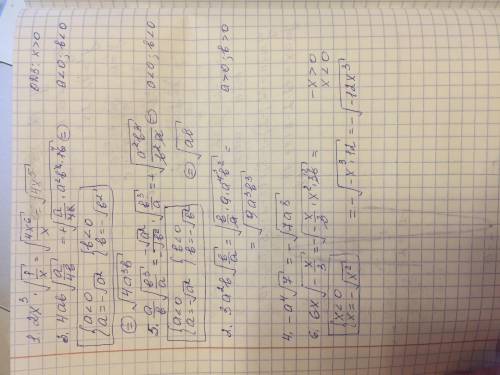 1. 2x³·√(1/x) = √(4x⁶/x) = √(4x⁵) ОДЗ: x>0
3. 4ab√(a/4b) = +√(a/4b · a²b²·16) ⊜ a<0; b<0
{a<0 {b<0
{a=-√a² {b=-√b²
⊜ √(4a³b)
5. a/b √(b³/a) = -√a²/-√b² · √(b³/a) = +√(a²b³/b²a) ⊜ a<0; b<0
{a<0 {b<0
{a=-√a² {b=-√b² ⊜ √(ab)
2. 3a²b√(b/a) = √(b/a · 9·a⁴b²) = a>0; b>0
= √(9a³b³)
4. -a⁴√7 = -√(7a⁸)
6. 6x√(-x/3) = -√(-x/3 · x²·36) = -x>0
{x<0 x<0
{x=-√(x²)
= -√(-x³·12) = -√(-12x³)